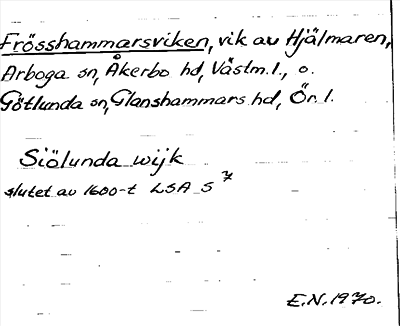 Frösshammarsviken, vik av Hjälmaren,
Arboga sn, Åkerbo hd, Västm.l., o.
Götlunda sn, Glanshammars hd, Ör. l.
Siölunda wijk
slutet av 1600-t LSA S 7
E.N. 1970.